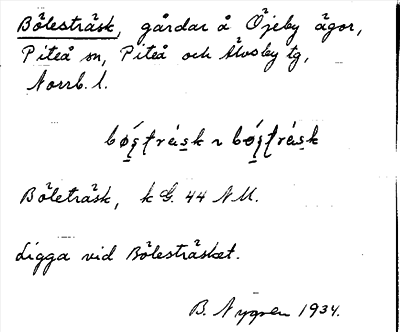 Bölesträsk, gårdar å Öjeby ägor,
Piteå sn, Piteå och Älvsby tg,
Norrb. l.
Böleträsk, k G. 44 NU.
Ligga vid Bölesträsket.
B. Nygren 1934.